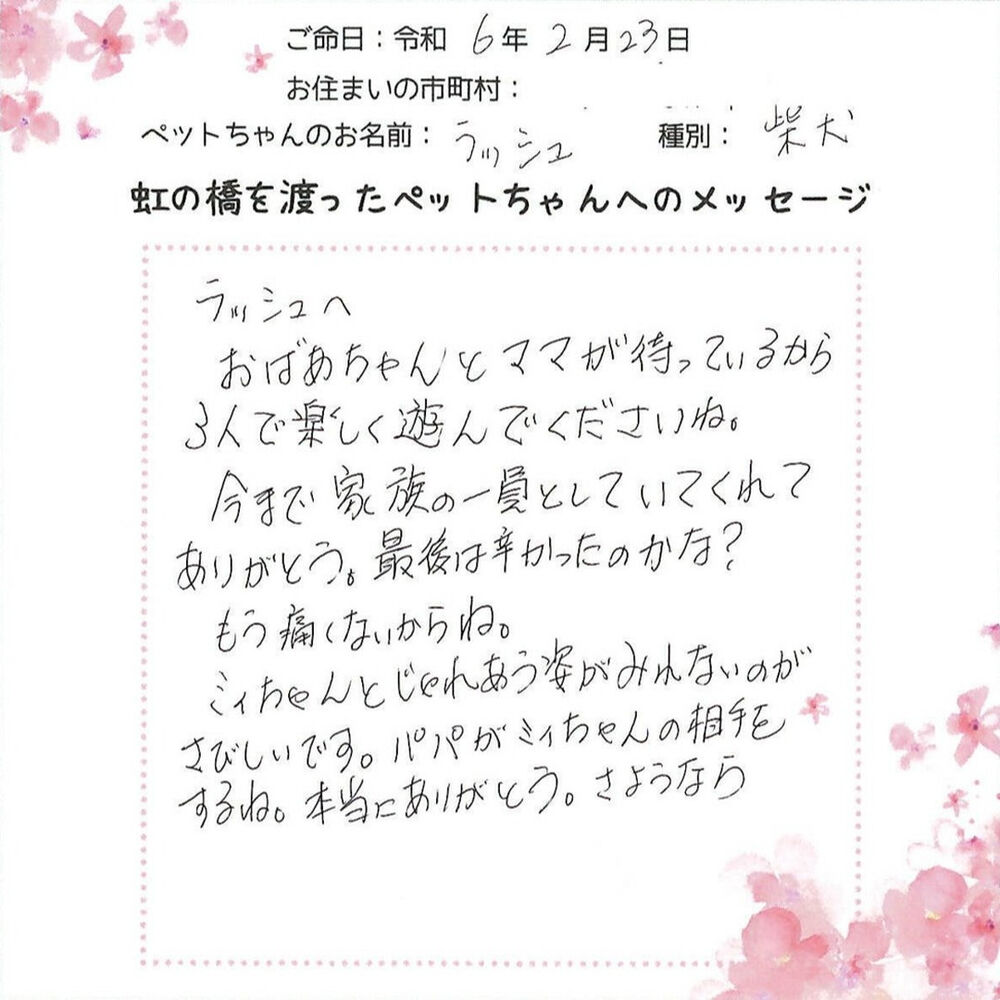 ご命日：令和 6年 2月23日
お住まいの市町村：
ペットちゃんのお名前：ラッシュ 種別：柴犬
虹の橋を渡ったペットちゃんへのメッセージ
ラッシュへ
おばあちゃんとママが待っているから
3人で楽しく遊んでくださいね。
今まで家族の一員としていてくれて
ありがとう。最後は辛かったのかな?
もう痛くないからね。
ミィちゃんとじゃれあう姿がみれないのが
さびしいです。パパがミィちゃんの相手を
するね。本当にありがとう。さようなら